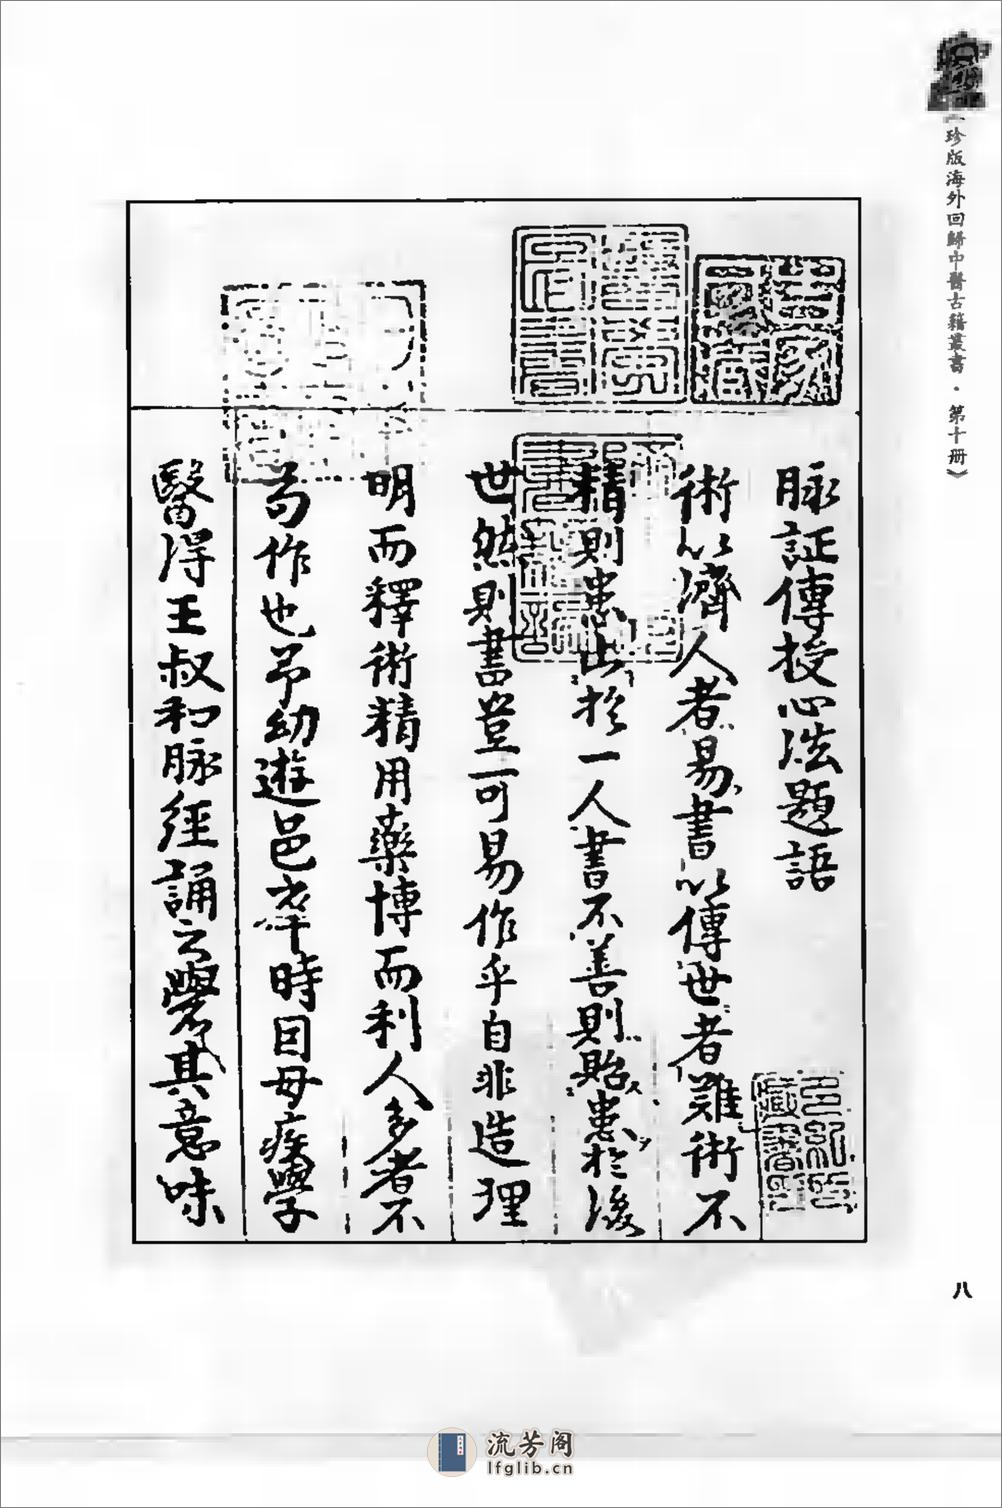 珍版海外回歸中醫古籍叢書·第十册》
脉証傳授心法題語
術以濟人者易書以傳世者難術不
精則患出於一人書不善則貽患於後
世然則書豈可易作乎自非造理
明而釋術精用藥博而利人多者不
苟作也予幼遊邑庠時因母疾學
醫得王叔和脉經誦之覺其意味
八
流芳阁
lfglib.cn